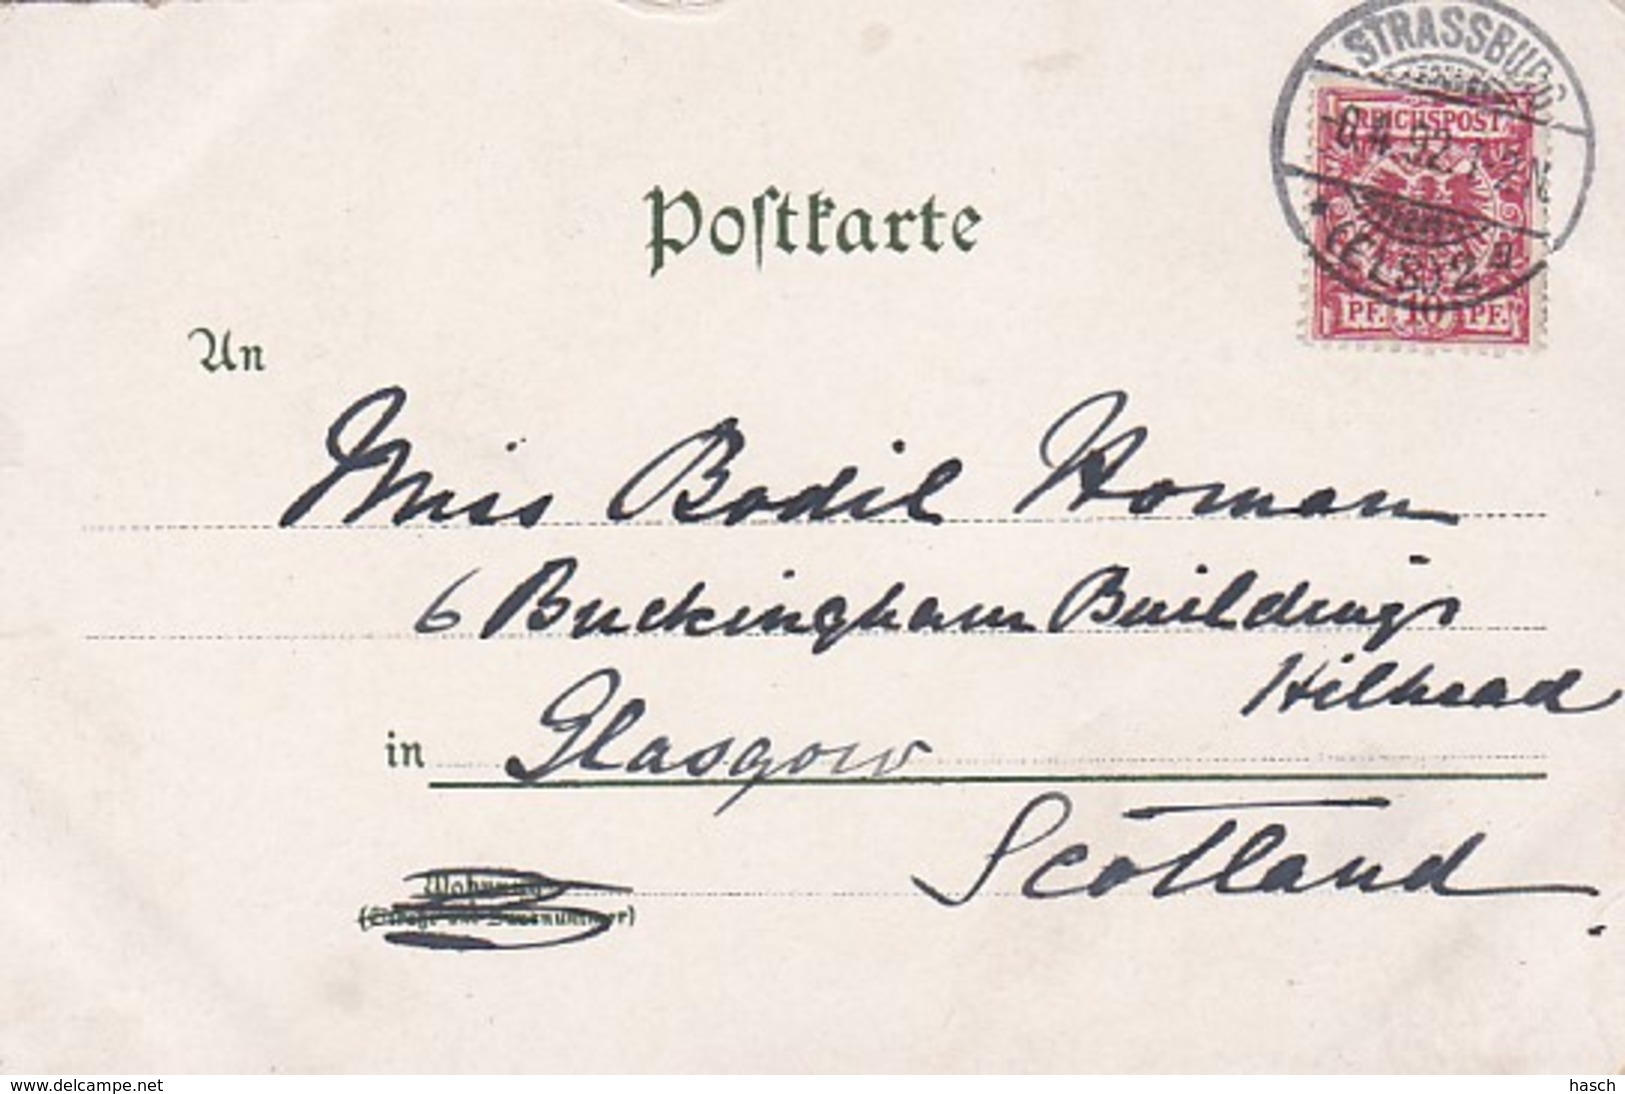 STRASSBURG
REICHSPOST
(ELS) 2
PF. 10 PF.
Postkarte
An
Miss Bodil Homan
6 Buckingham Buildings
Hilhead
in Glasgow
Scotland
Wohnung
(Straße und Hausnummer)
www.delcampe.net
hasch